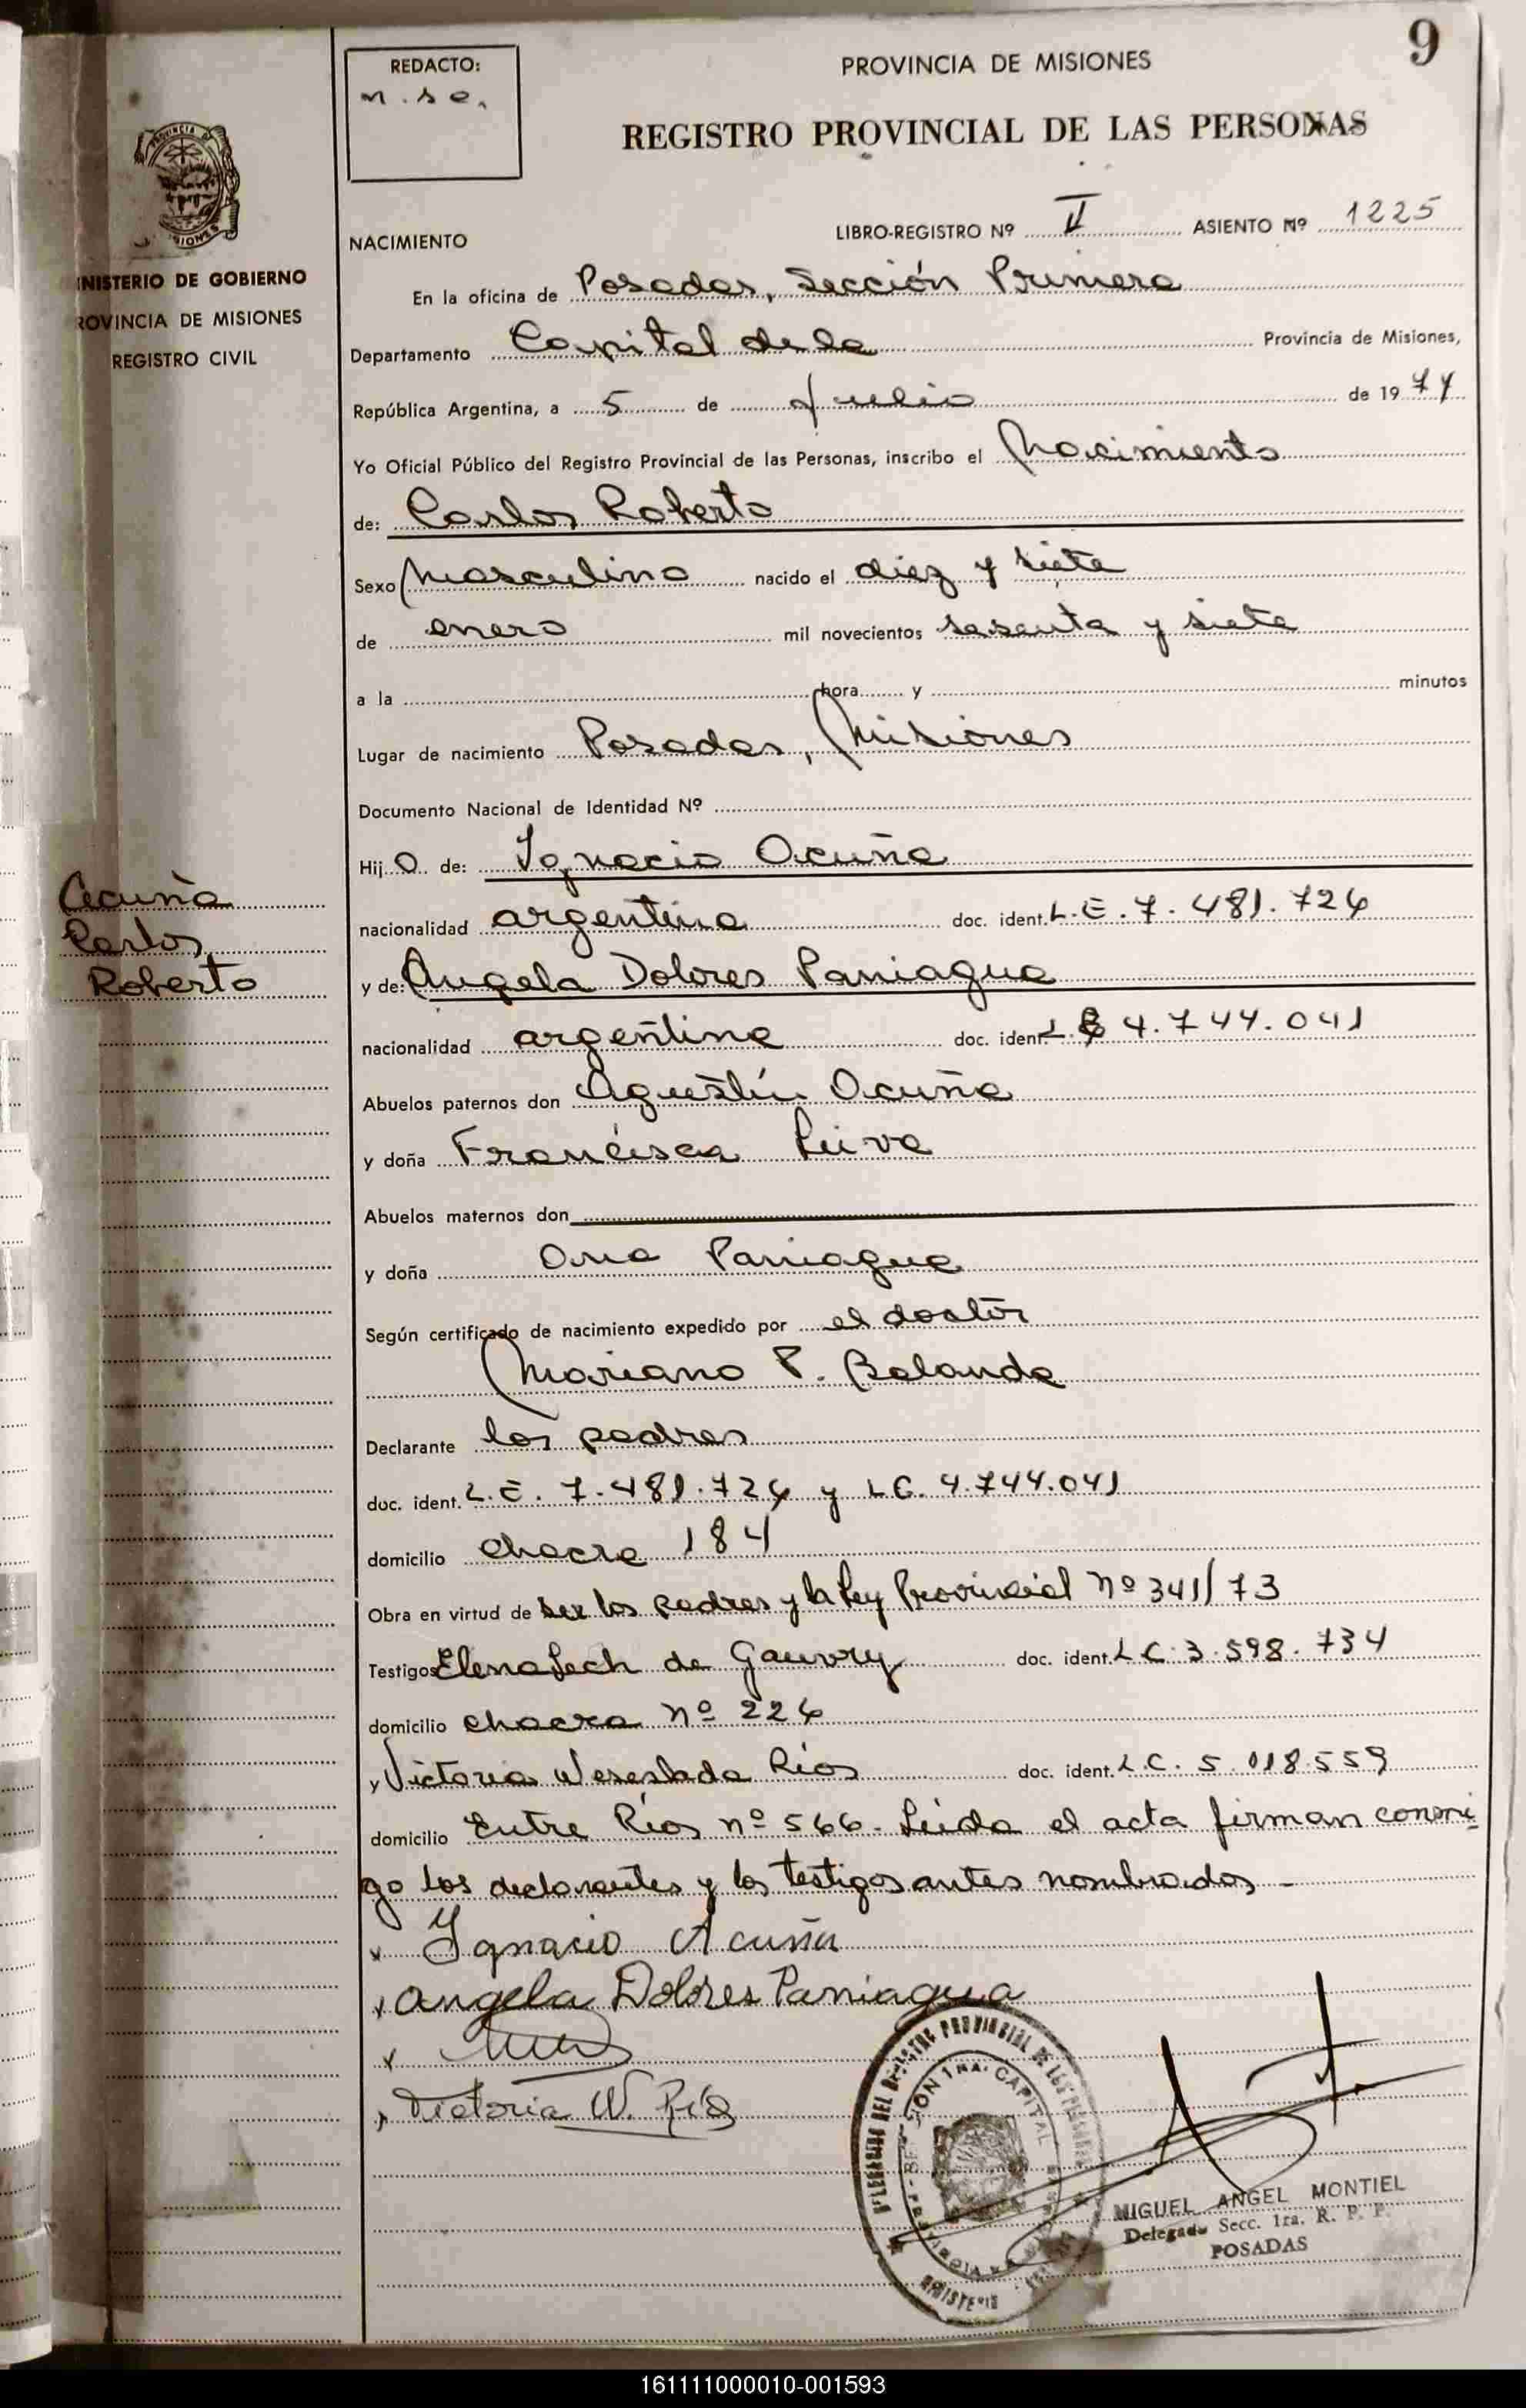 9
REDACTO:
m.s.e.
PROVINCIA DE MISIONES
REGISTRO PROVINCIAL DE LAS PERSONAS
LIBRO-REGISTRO Nº II ASIENTO Nº 1225
NACIMIENTO
NISTERIO DE GOBIERNO
ROVINCIA DE MISIONES
REGISTRO CIVIL
En la oficina de Posadas, Sección Primera
Departamento Capital de la Provincia de Misiones,
República Argentina, a 5 de Julio de 1974
Yo Oficial Público del Registro Provincial de las Personas, inscribo el Nacimiento
de: Carlos Roberto
Sexo Masculino nacido el diez y siete
de enero mil novecientos sesenta y siete
a la hora y minutos
Lugar de nacimiento Posadas, Misiones
Documento Nacional de Identidad Nº
Hij o de: Ignacio Acuña
Acuña
Carlos
Roberto
nacionalidad argentina doc. ident. L.E. 7.481.726
y de: Angela Dolores Paniagua
nacionalidad argentina doc. ident. L.C 4.744.041
Abuelos paternos don Agustín Acuña
y doña Francisca Leiva
Abuelos maternos don
y doña Ana Paniagua
Según certificado de nacimiento expedido por el doctor
Mariano P. Balanda
Declarante los padres
doc. ident. L.E. 7.481.726 y L.C. 4.744.041
domicilio chacra 184
Obra en virtud de ser los padres y la Ley Provincial Nº 341/73
Testigos Elena Lech de Gauvry doc. ident. L C. 3.598.734
domicilio chacra Nº 226
y Victoria Weseslada Ríos doc. ident. L.C. 5.018.559
domicilio Entre Ríos nº 566. Leída el acta firman conmi-
go los declarantes y los testigos antes nombrados -
x Ignacio Acuña
x Angela Dolores Paniagua
x
x Victoria W. Ríos
MIGUEL ANGEL MONTIEL
Delegado Secc. 1ra. R. P. P.
POSADAS
161111000010-001593